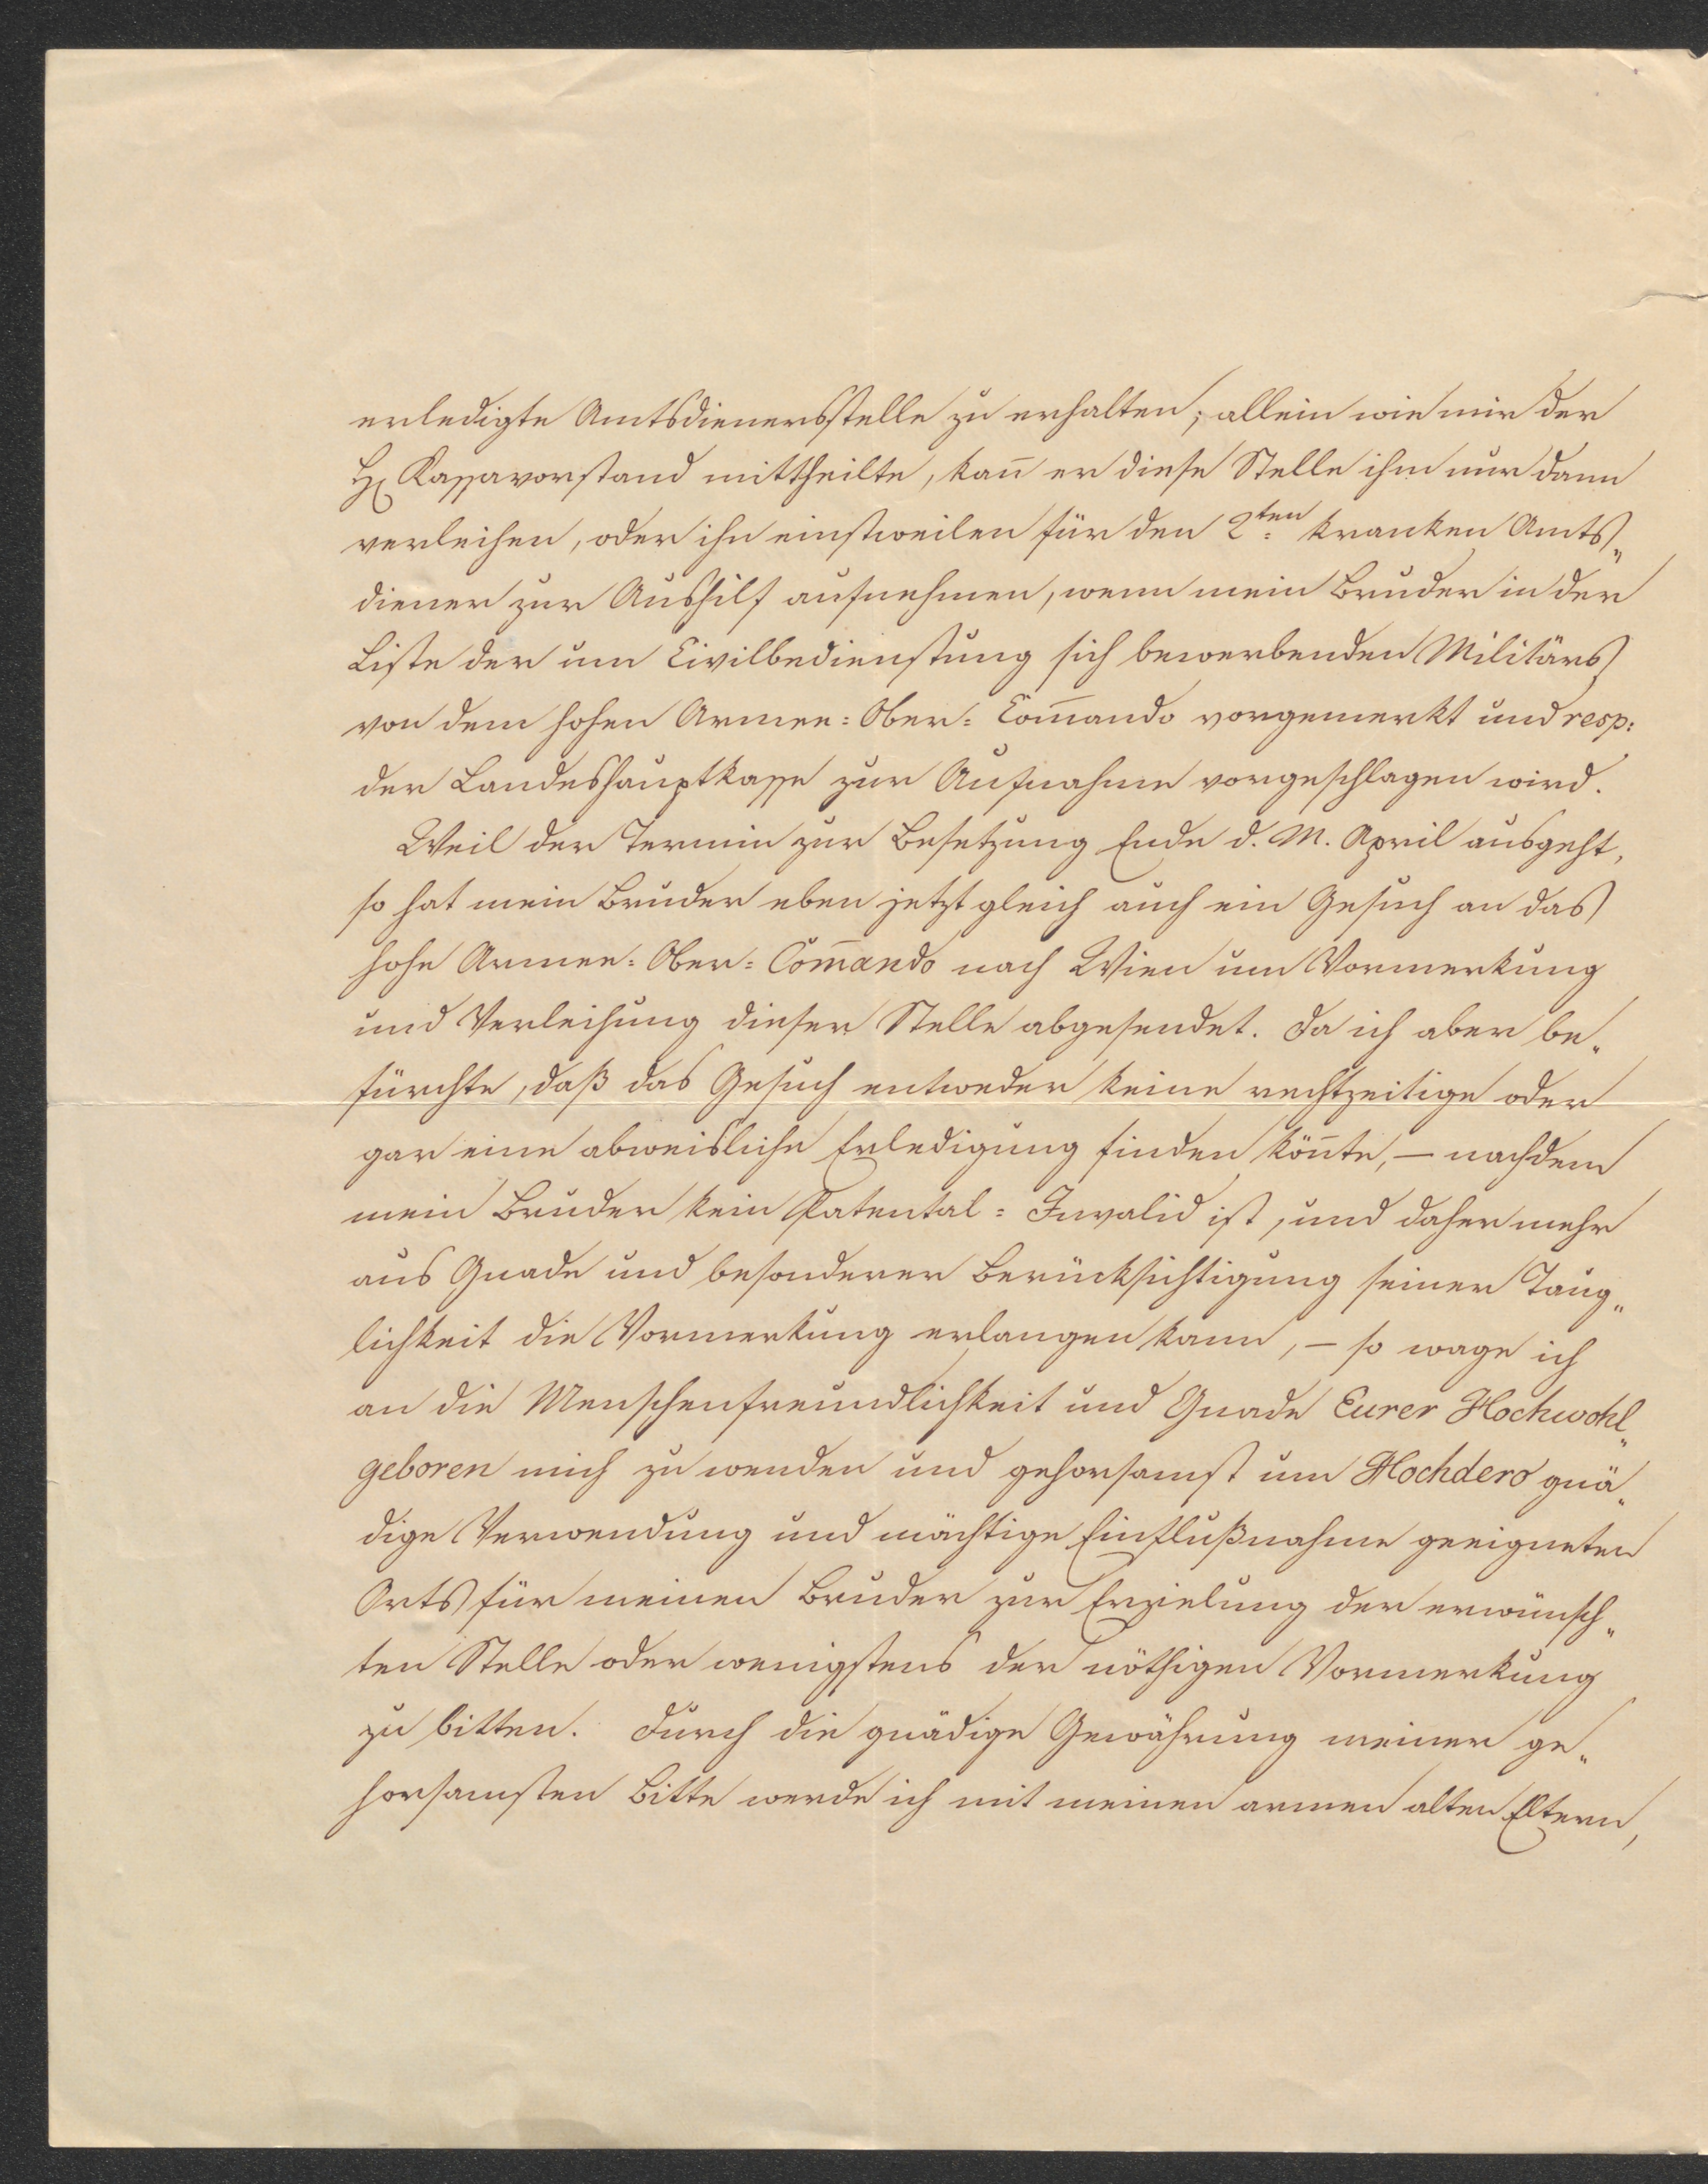 erledigte Amtsdienersstelle zu erhalten; allein wie mir der
H: Kassavorstand mittheilte, kan̄ er diese Stelle ihm nur dann
verleihen, oder ihn einstweilen für den 2ten kranken Amts„
diener zur Aushilf aufnehmen, wenn mein Bruder in der
Liste der um Civilbedienstung sich bewerbenden Militärs
von dem hohen Armee=Ober=Com̄ando vorgemerkt und resp:
der Landeshauptkasse zur Aufnahme vorgeschlagen wird.
Weil der Termin zur Besetzung Ende d. M. April ausgeht,
so hat mein Bruder eben jetzt gleich auch ein Gesuch an das
hohe Armee=Ober=Com̄ando nach Wien um Vormerkung
und Verleihung dieser Stelle abgesendet. Da ich aber be„
fürchte, daß das Gesuch entweder keine rechtzeitige oder
gar eine abweisliche Erledigung finden kön̄te, — nachdem
mein Bruder kein Patental=Invalid ist, und daher mehr
aus Gnade und besonderer Berücksichtigung seiner Taug„
lichkeit die Vormerkung erlangen kann, — so wage ich
an die Menschenfreundlichkeit und Gnade Eurer Hochwohl„
geboren mich zu wenden und gehorsamst um Hochdero gnä„
dige Verwendung und mächtige Einflußnahme geeigneten
Orts für meinen Bruder zur Erzielung der erwünsch„
ten Stelle oder wenigstens der nöthigen Vormerkung
zu bitten. Durch die gnädige Gewährung meiner ge„
horsamsten Bitte werde ich mit meinen armen alten Eltern,